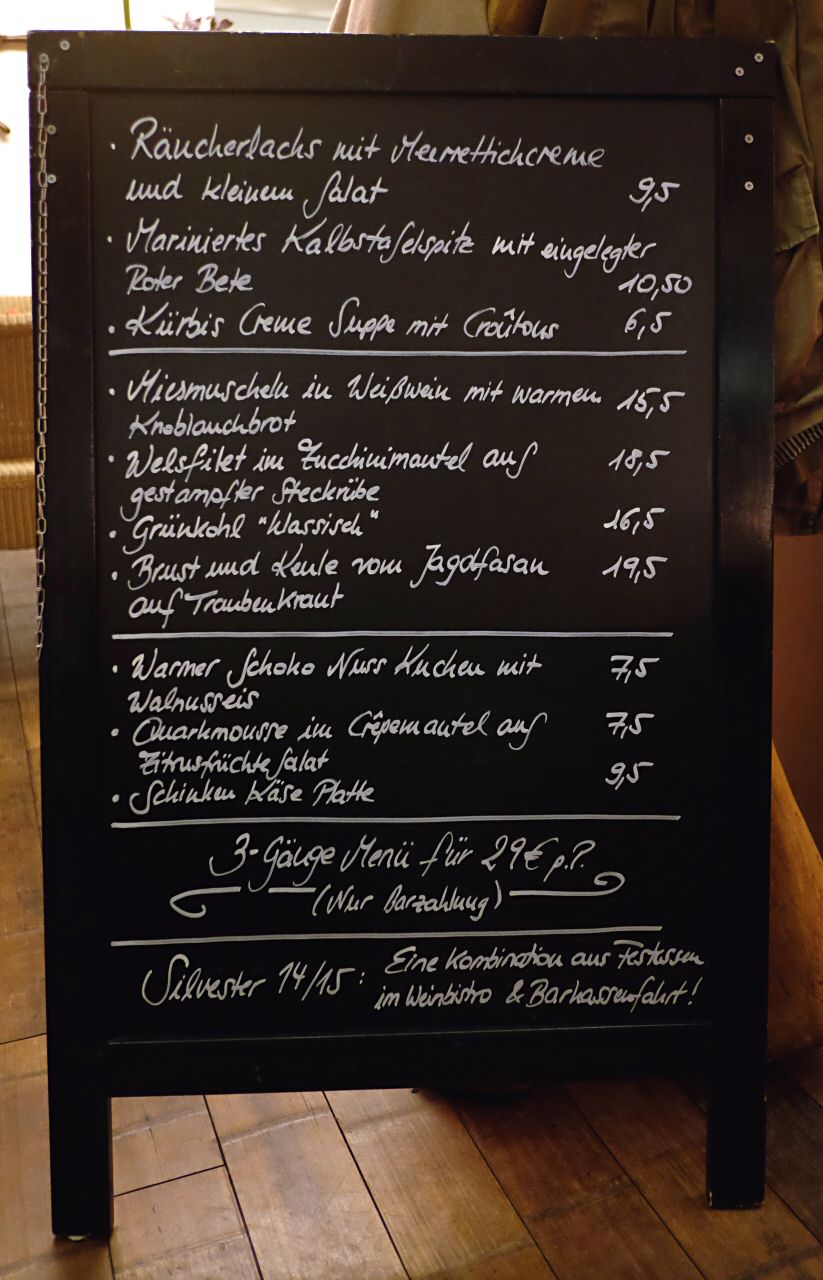 · Räucherlachs mit Meerrettichcreme
und kleinem Salat 9,5
· Mariniertes Kalbstafelspitz mit eingelegter
Roter Bete 10,50
· Kürbis Creme Suppe mit Croûtons 6,5
· Miesmuscheln in Weißwein mit warmem 15,5
Knoblauchbrot
· Welsfilet im Zucchinimantel auf 18,5
gestampfter Steckrübe
· Grünkohl "Klassisch" 16,5
· Brust und Keule vom Jagdfasan 19,5
auf Traubenkraut
· Warmer Schoko Nuss Kuchen mit 7,5
Walnusseis
· Quarkmousse im Crêpemantel auf 7,5
Zitrusfrüchte Salat
· Schinken Käse Platte 9,5
3-Gänge Menü für 29€ p.P.
(Nur Barzahlung)
Silvester 14/15: Eine Kombination aus Festessen
im Weinbistro & Barkassenfahrt!